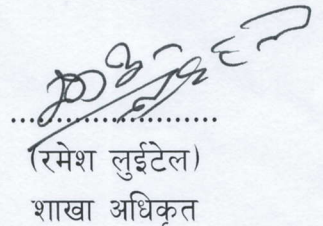 ....................
(रमेश लुईटेल)
शाखा अधिकृत